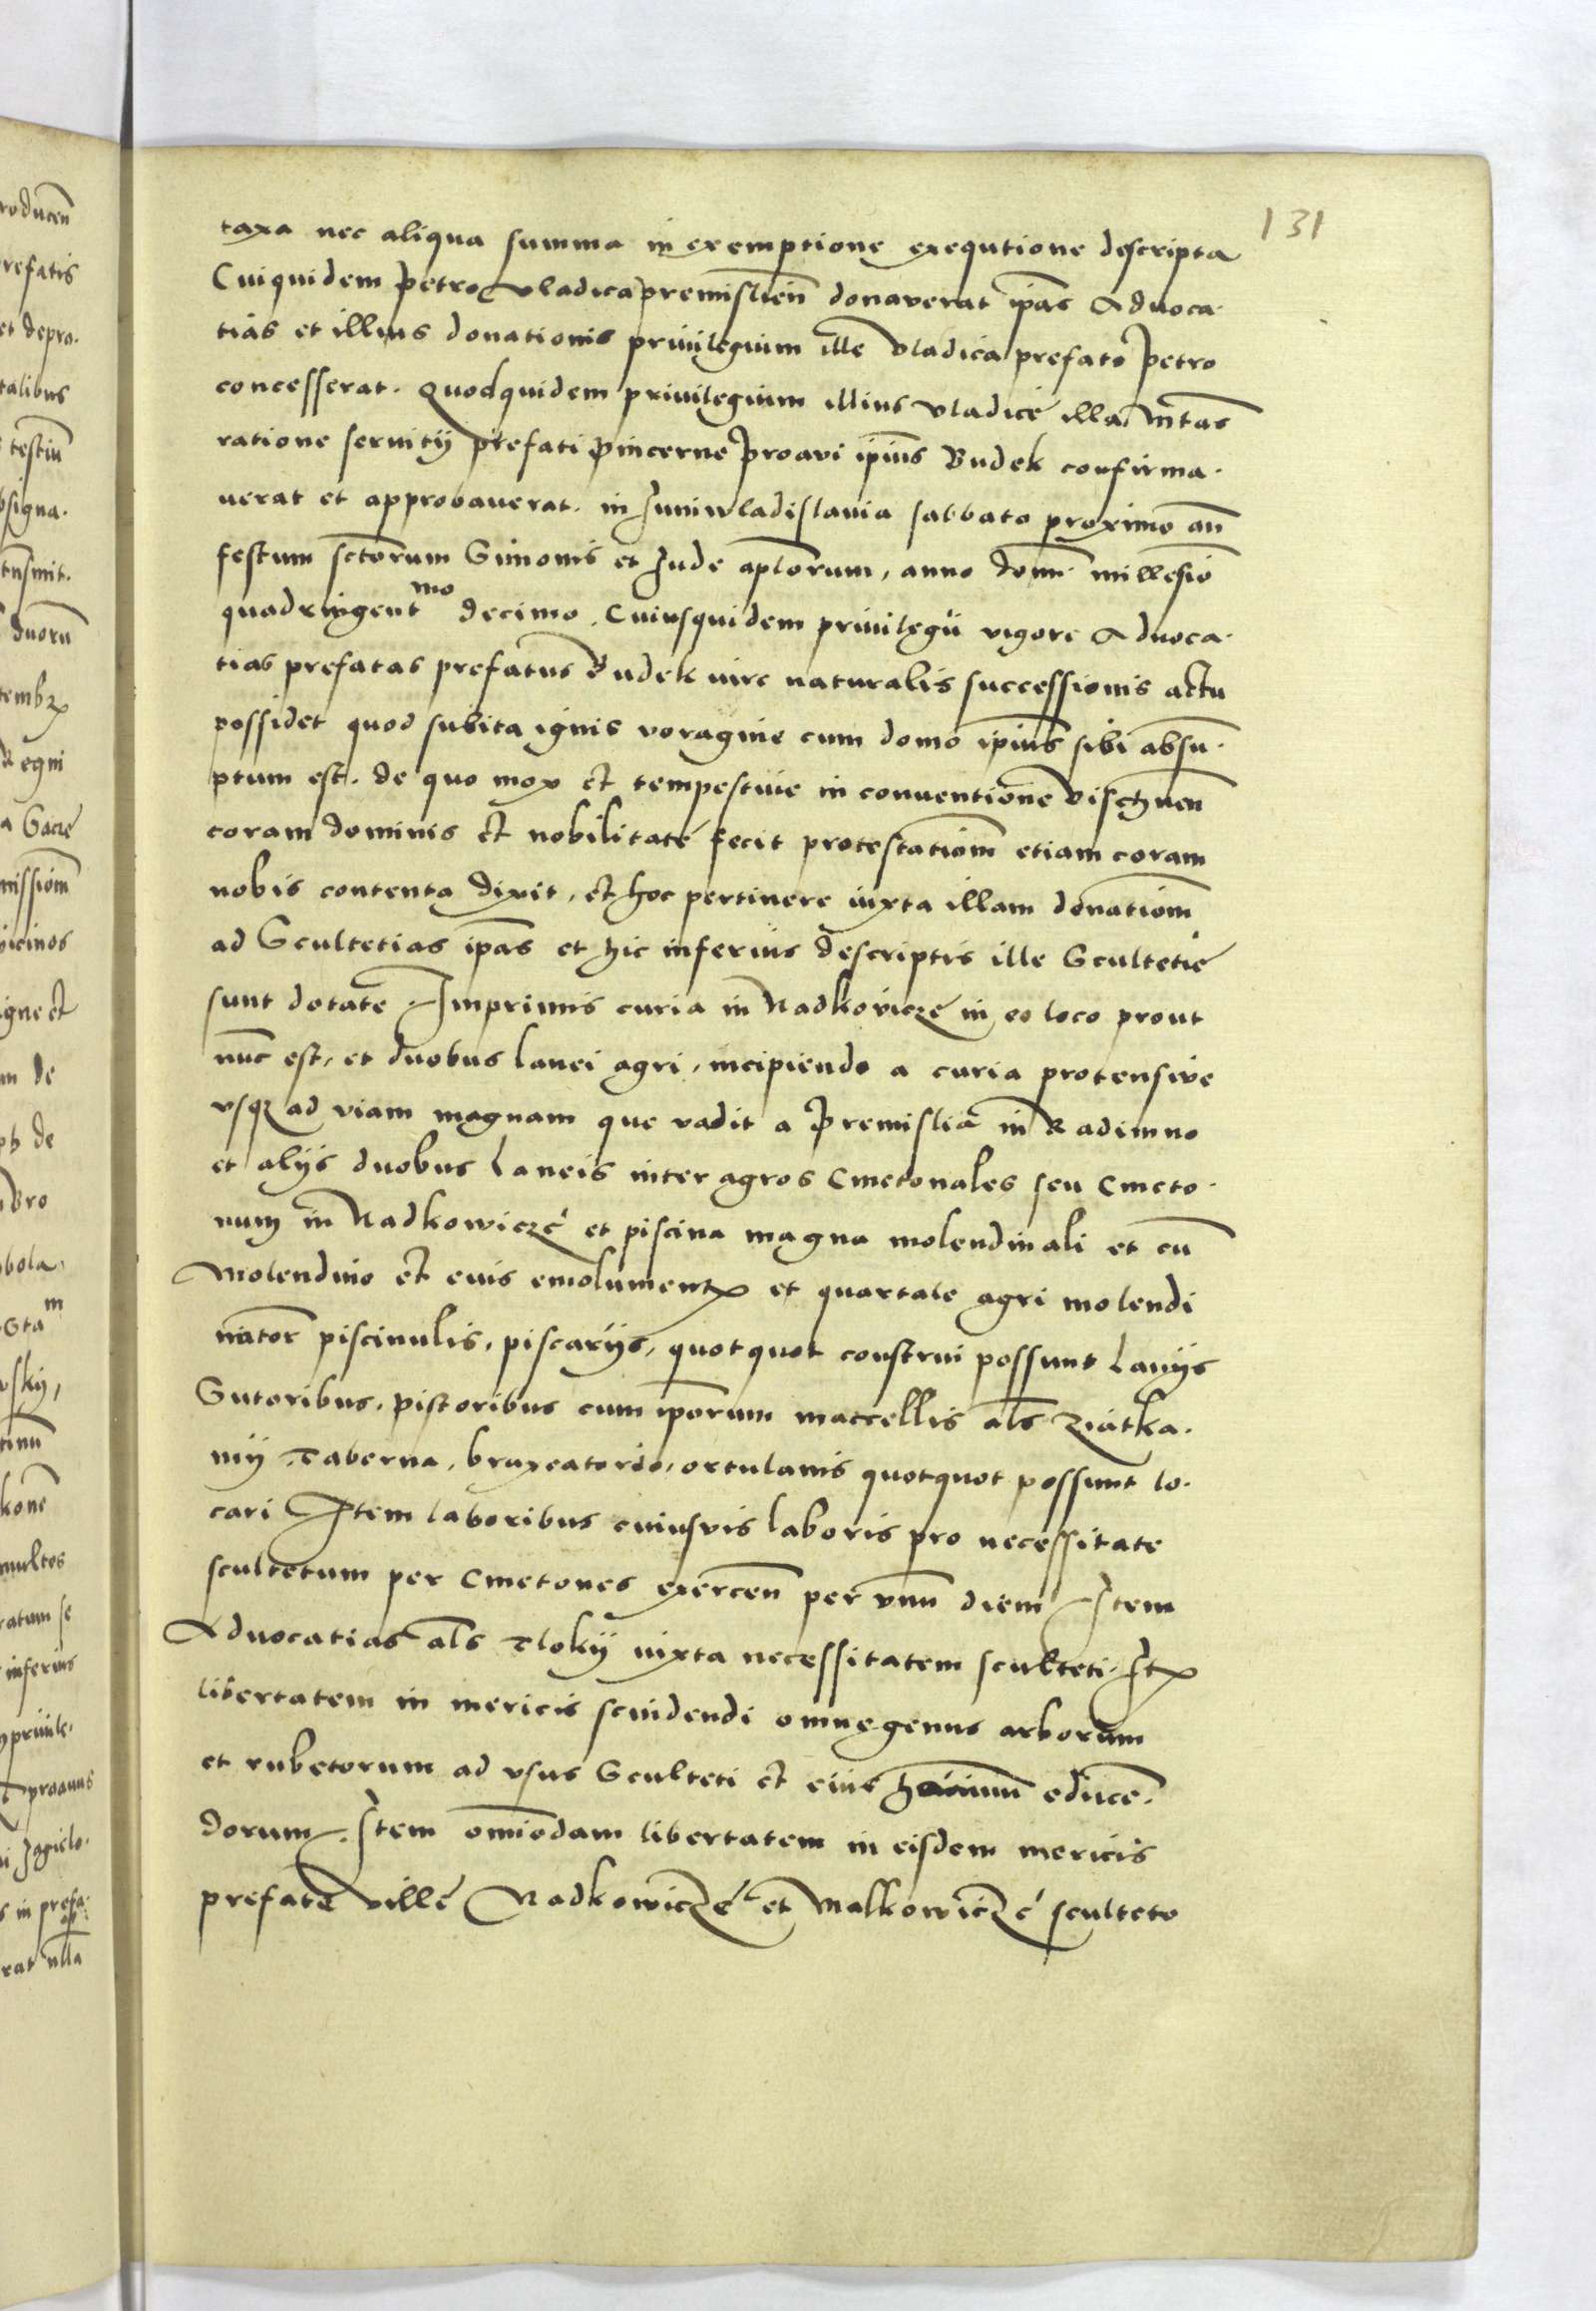 131
taxa nec aliqua summa in exemptione exequtione descripta
Cuiquidem Petro vladica premislien̄ donaverat ip̄as Advoca-
tias et illius donationis privilegium ille vladica prefato Petro
concesserat. Quodquidem privilegium illius vladice illa Mtas̄
ratione servitij prefati pincerne Proavi ip̄ius Budek confirma-
uerat et approbauerat. in Juniwladislauia sabbato proximo an̄
festum sctōrum Simonis et Jude aplōrum, anno domī millesīo
quadringent mo decimo. Cuiusquidem privilegii vigore Advoca-
tias prefatas prefatus Budek iure naturalis successionis actu
possidet quod subita ignis voragine cum domo ip̄ius sibi absu-
ptum est. de quo mox et tempestiue in conuentione visch̄nen̄
coram dominis et nobilitate fecit protestatiōm etiam coram
nobis contenta dixit, et hoc pertinere iuxta illam donatiōm
ad Scultetias ip̄as et hic inferius descriptis ille Scultetie
sunt dotate. Imprimis curia in Nadkovicze in eo loco prout
nūc est, et duobus lanei agri, incipiendo a curia protensive
vsqz ad viam magnam que vadit a Premislia in Radimno
et alijs duobus laneis inter agros Cmetonales seu Cmeto-
num in Nadkowicze et piscina magna molendinali et cū
Molendino et euis emolument et quartale agri molendi
nātor piscinulis, piscarijs, quotquot construi possunt lanijs
Sutoribus, pistoribus cum ip̄orum maccellis als̄ ziatka-
mij Taberna, braxeatorio, ortulanis quotquot possunt lo-
cari Item laboribus cuiusvis laboris pro necessitate
scultetum per Cmetones exercen̄ per vnū diem Item
Advocatias als̄ Tlokij iuxta necessitatem sculteti, Itz
libertatem in mericis scindendi omne genus arborum
et rubetorum ad vsus Sculteti et eius educe-
dorum. Item omīodam libertatem in eisdem mericis
prefate ville Nadkowicze et Malkowicze sculteto